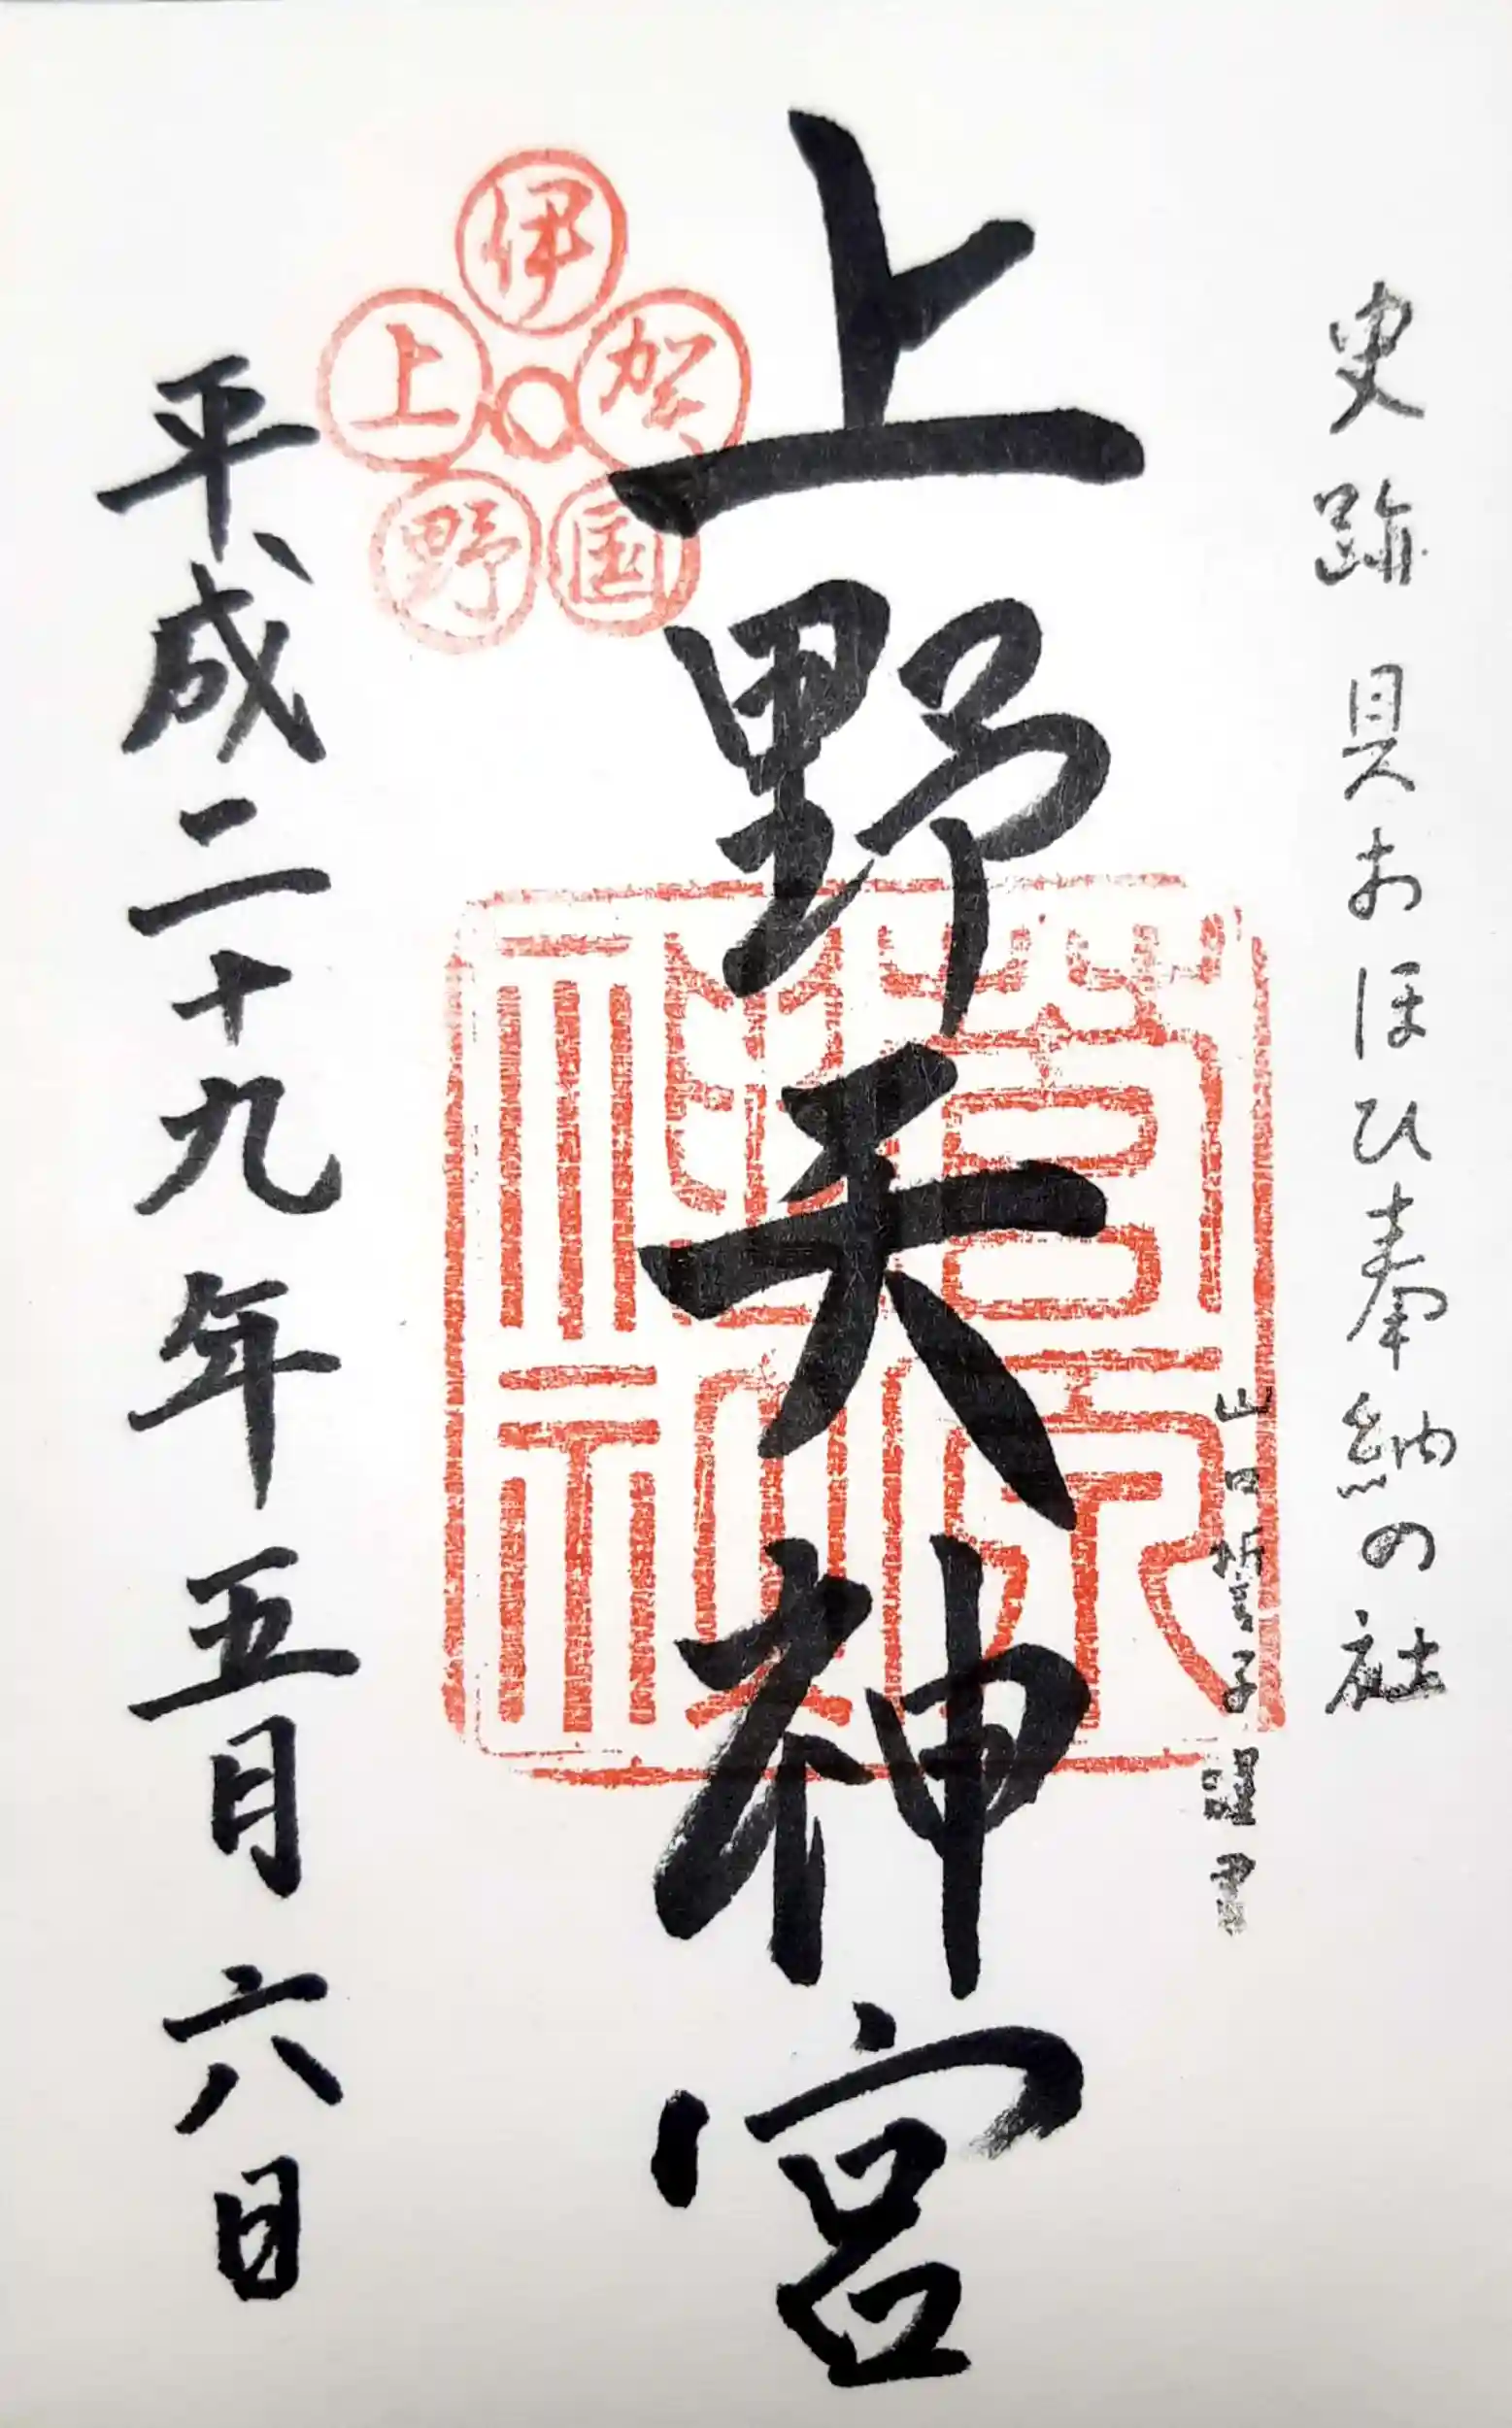 史跡 貝おほひ奉納の社
山口誓子
上野天神宮
菅原神社
伊賀国野上
平成二十九年五月六日